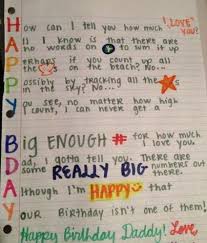 How can I tell you how much "I LOVE" YOU?
All I know is that there are
no words on to sum it up
Perhaps if you count up all
the on the beach? No...
Possibly by tracking all the s
in the sky? No...
You see, no matter how high
I count, I can never get a
Big ENOUGH # for how much
I love you.
Dad, I gotta tell you. There are
some REALLY BIG numbers out there.
Although I'm HAPPY that
OUR Birthday isn't one of them!
Happy Birthday Daddy! Love,